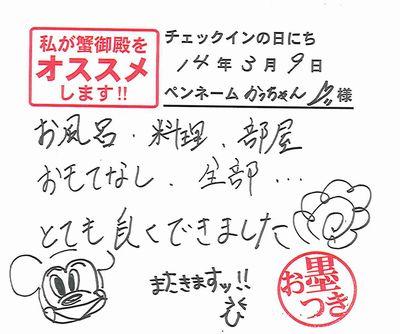 私が蟹御殿を
オススメ
します!!
チェックインの日にち
14年3月9日
ペンネーム かっちゃん 様
お風呂、料理、部屋
おもてなし、全部…
とても良くできました
またきますッ!!
お墨つき